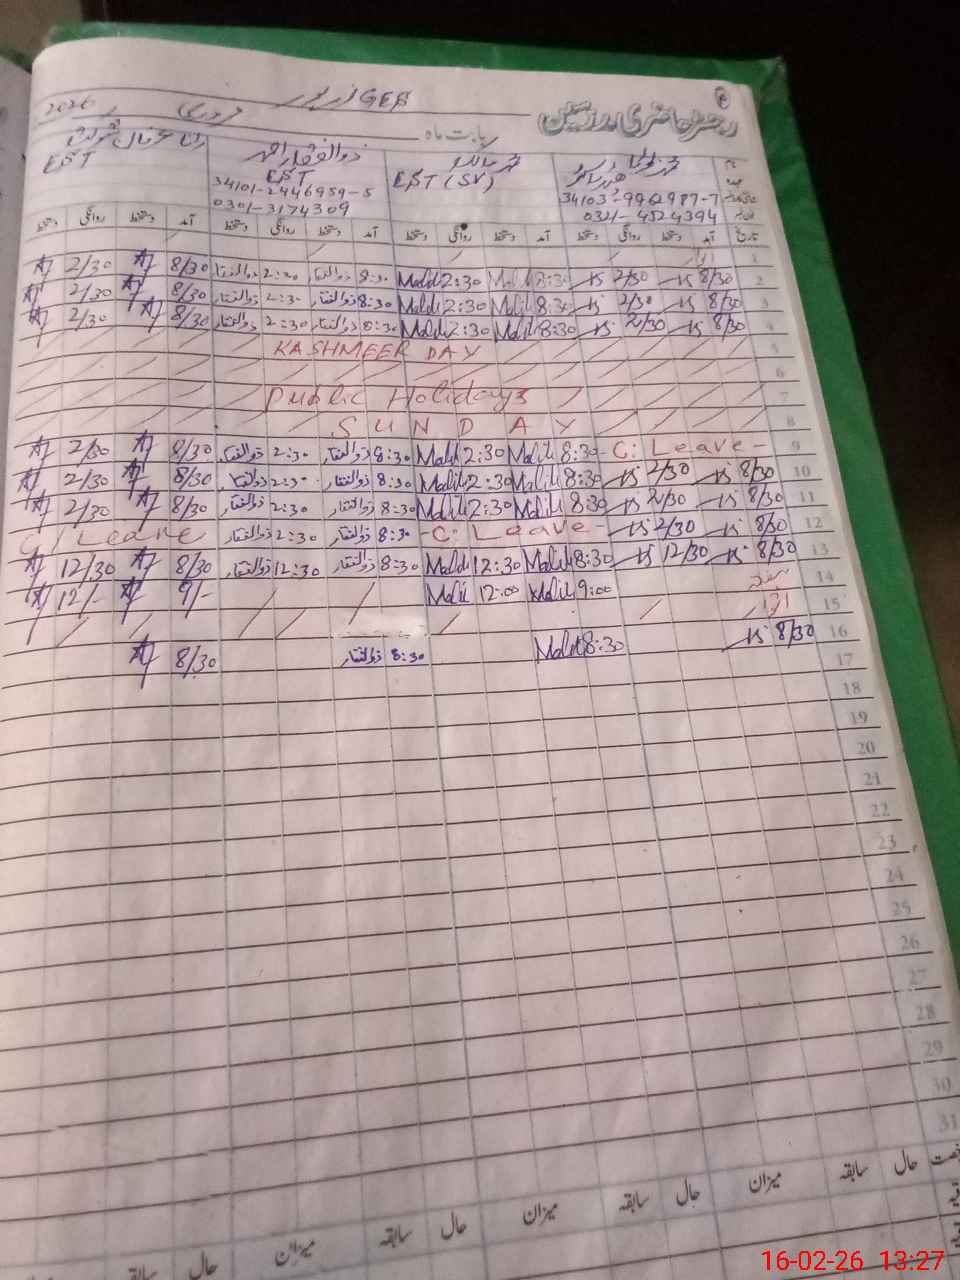 2026 فروری GES
رجسٹر حاضری مدرسین بابت ماہ
ذوالفقار احمد
EST EST EST (SV)
34101-2446959-5 34103-9962987-7
0301-3174309 0321-4524394
تاریخ آمد دستخط روانگی دستخط آمد دستخط روانگی دستخط آمد دستخط روانگی دستخط آمد دستخط روانگی دستخط
1 اتوار
2/30 8/30 2:30 ذوالفقار 8:30 ذوالفقار Malik 2:30 Malik 8:30 2/30 8/30 2
2/30 8/30 2:30 ذوالفقار 8:30 ذوالفقار Malik 2:30 Malik 8:30 2/30 8/30 3
2/30 8/30 2:30 ذوالفقار 8:30 ذوالفقار Malik 2:30 Malik 8:30 2/30 8/30 4
KASHMEER DAY 5
6
Public Holidays 7
SUNDAY 8
2/30 8/30 2:30 ذوالفقار 8:30 ذوالفقار Malik 2:30 Malik 8:30 - C: Leave - 9
2/30 8/30 2:30 ذوالفقار 8:30 ذوالفقار Malik 2:30 Malik 8:30 2/30 8/30 10
2/30 8/30 2:30 ذوالفقار 8:30 ذوالفقار Malik 2:30 Malik 8:30 2/30 8/30 11
C/ Leave 2:30 ذوالفقار 8:30 ذوالفقار - C: Leave - 2/30 8/30 12
12/30 8/30 12:30 ذوالفقار 8:30 ذوالفقار Malik 12:30 Malik 8:30 12/30 8/30 13
12/- 9/- Malik 12:00 Malik 9:00 14
اتوار 15
8/30 8:30 ذوالفقار Malik 8:30 8/30 16
17
18
19
20
21
22
23
24
25
26
27
28
29
30
31
رخصت حال سابقہ میزان حال سابقہ میزان حال سابقہ میزان حال سابقہ
16-02-26 13:27